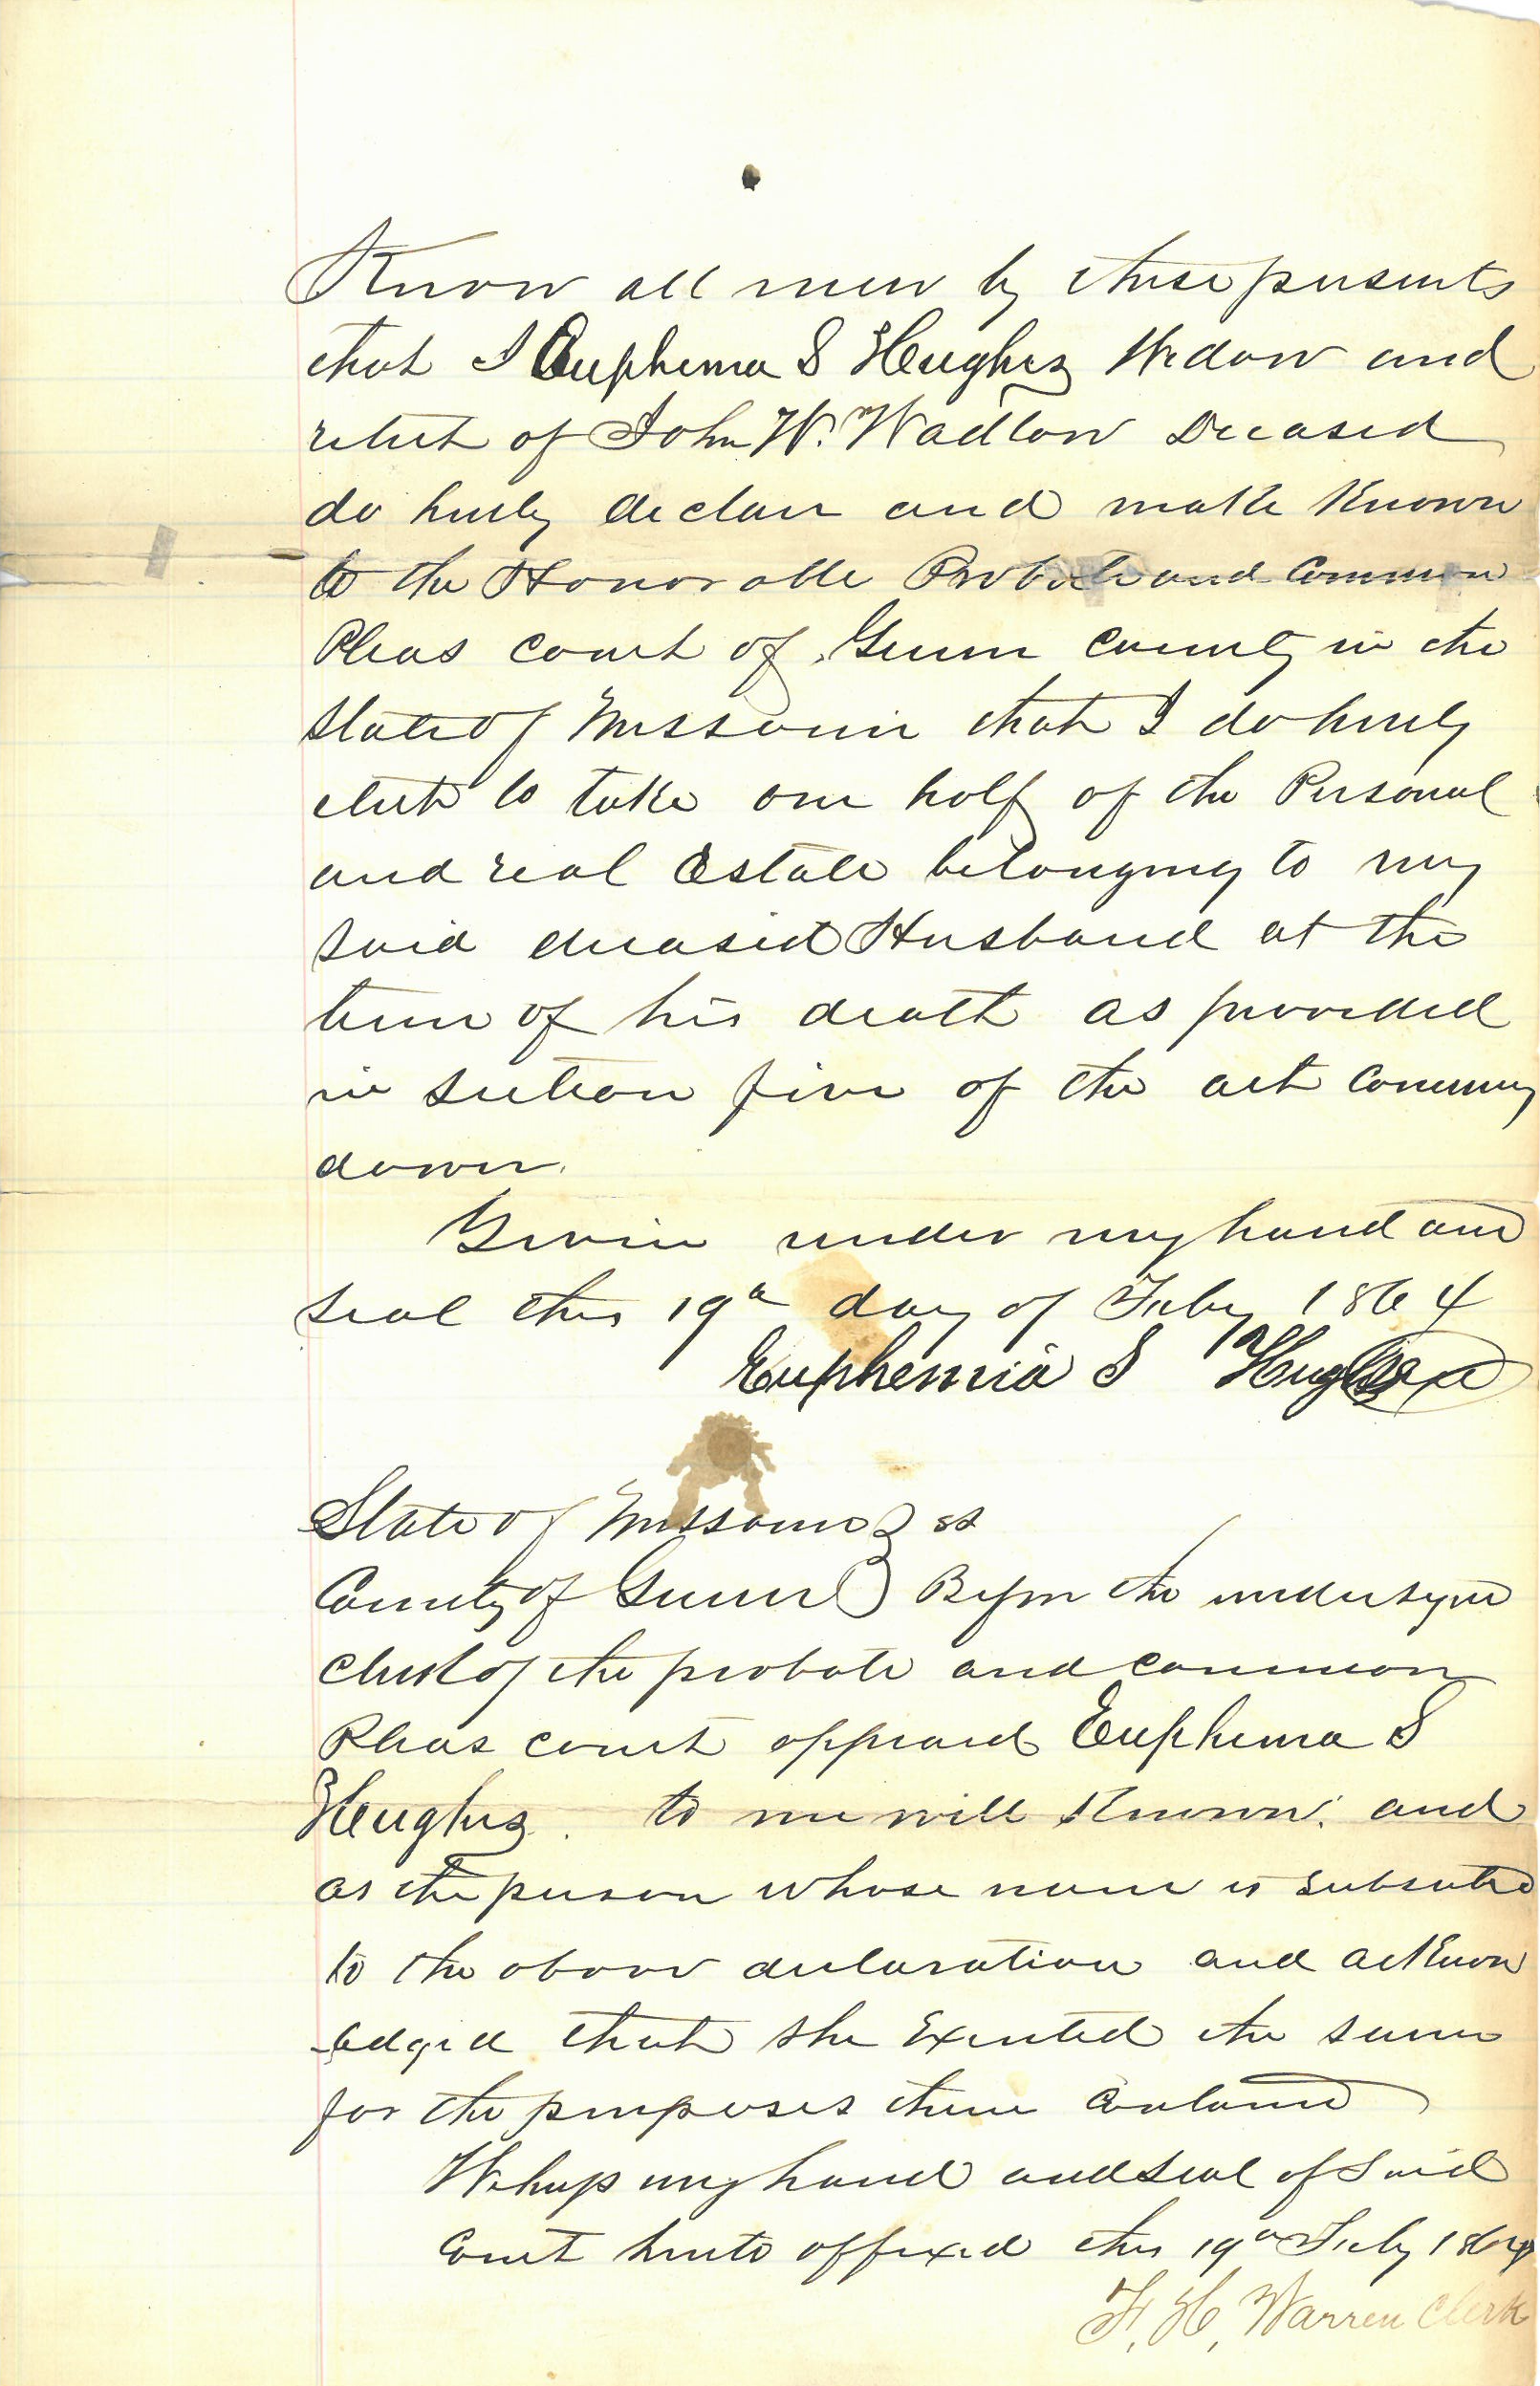 Know all men by these presents
that I Euphema S Hughes Widow and
relict of John W. Wadlow Deceased
do hereby declare and make Known
to the Honorable Probate and Common
Pleas court of Green County in the
State of Missouri that I do hereby
elect to take one half of the Personal
and real Estate belonging to my
said deceased Husband at the
time of his death as provided
in section five of the act Concerning
dower.
Given under my hand and
seal this 19th day of July 1864
Euphemia S Hughes
State of Missouri ss
County of Green Before the undersigned
clerk of the probate and common
Pleas court appeared Euphema S
Hughes to me well Known and
as the person whose name is subscribed
to the above declaration and acknow
ledged that she Executed the same
for the purposes there contained
Witness my hand and seal of Said
Court hereto affixed this 19th July 1864
F. H. Warren Clerk